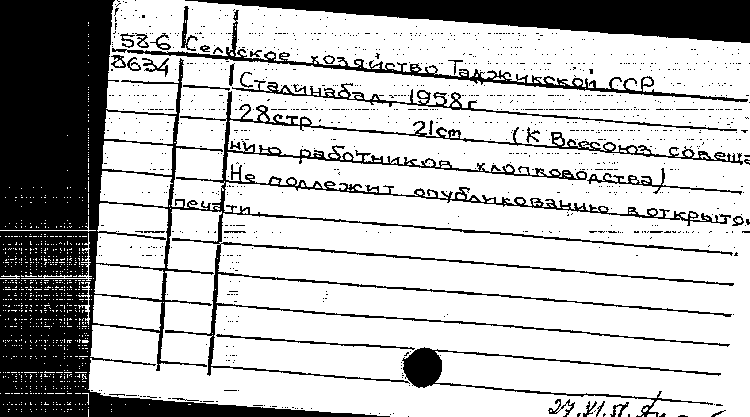 58-6 Сельское хозяйство Таджикской ССР
8634
Сталинабад, 1958г
28стр. 21cm. (К Всесоюз. совеща
нию работников хлопководства)
Не подлежит опубликованию в открытой
печати.